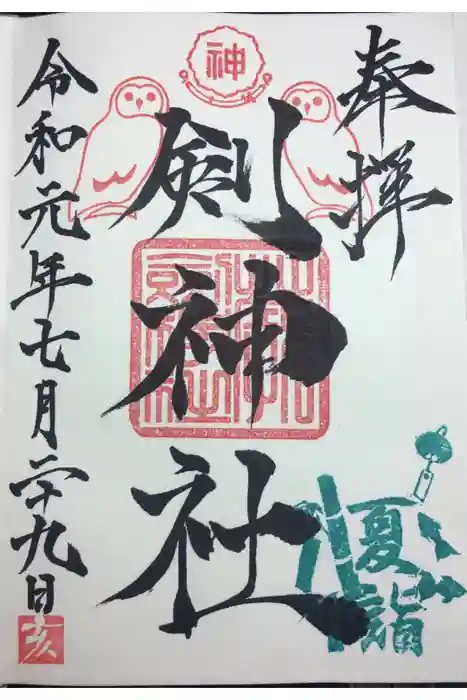 奉拝
神
剣神社
令和元年七月二十九日
亥
夏詣